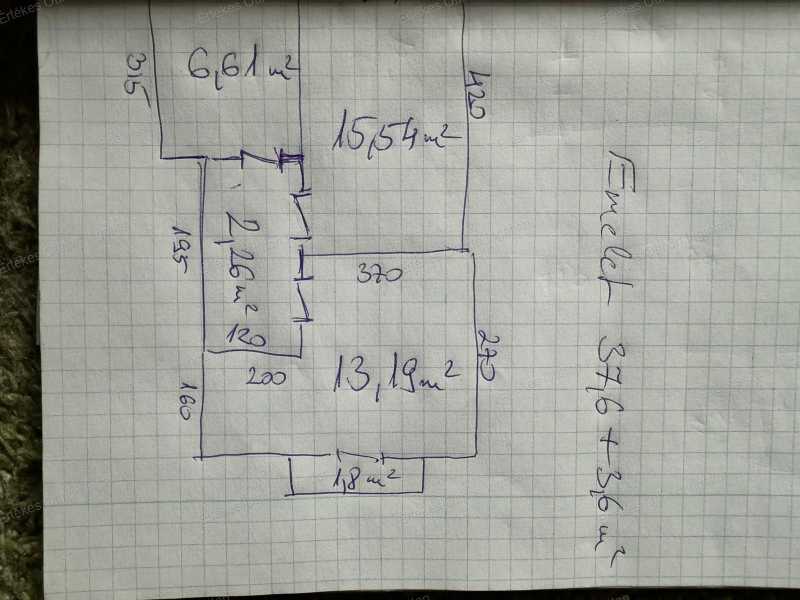 315
6,61 m²
15,54 m²
420
195
2,26 m²
120
370
160
200
13,19 m²
270
1,8 m²
Emelet 37,6 + 3,6 m²